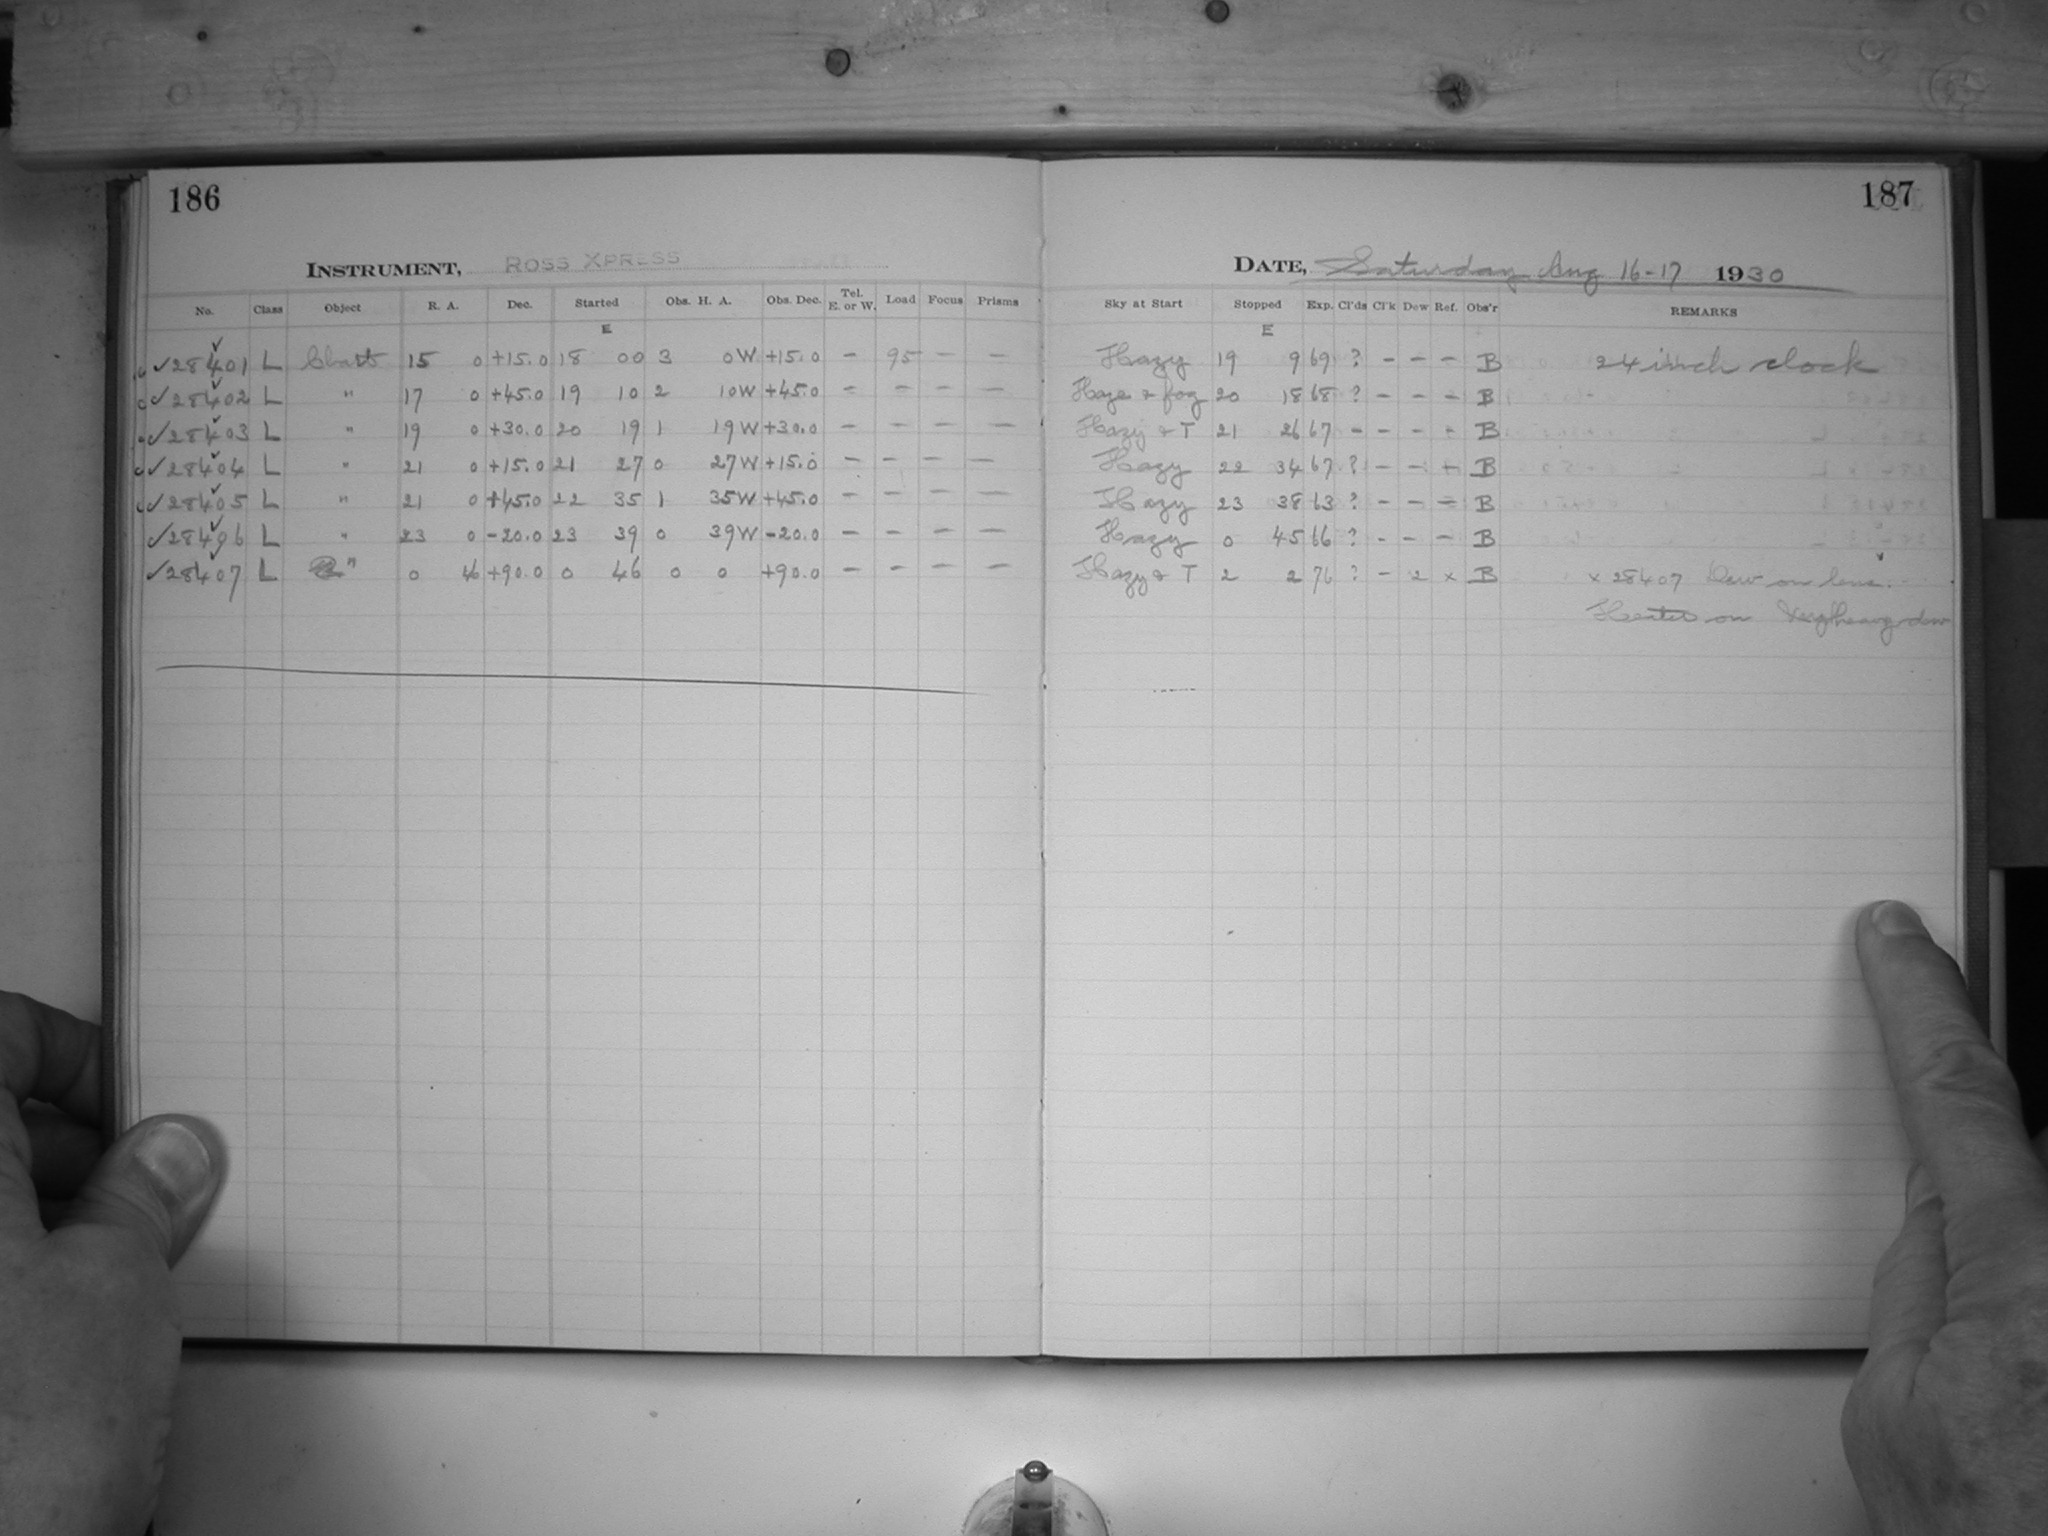 186
187
INSTRUMENT, ROSS XPRESS
DATE, Saturday Aug 16-17 1930
No. Class Object R. A. Dec. Started Obs. H. A. Obs. Dec. Tel. E. or W. Load Focus Prisms Sky at Start Stopped Exp. Cl'ds Cl'k Dew Ref. Obs'r REMARKS
E E
✓28401 L Charts 15 0 +15.0 18 00 3 0W +15.0 - 95 - - Hazy 19 9 69 ? - - - B 24 inch clock
✓28402 L " 17 0 +45.0 19 10 2 10W +45.0 - - - - Haze + fog 20 18 68 ? - - - B
✓28403 L " 19 0 +30.0 20 19 1 19W +30.0 - - - - Hazy + T 21 26 67 - - - - B
✓28404 L " 21 0 +15.0 21 27 0 27W +15.0 - - - - Hazy 22 34 67 ? - - - B
✓28405 L " 21 0 +45.0 22 35 1 35W +45.0 - - - - Hazy 23 38 63 ? - - - B
✓28406 L " 23 0 -20.0 23 39 0 39W -20.0 - - - - Hazy 0 45 66 ? - - - B
✓28407 L " 0 46 +90.0 0 46 0 0 +90.0 - - - - Hazy + T 2 2 76 ? - 2 x B x 28407 Dew on lens.
Heater on Very heavy dew